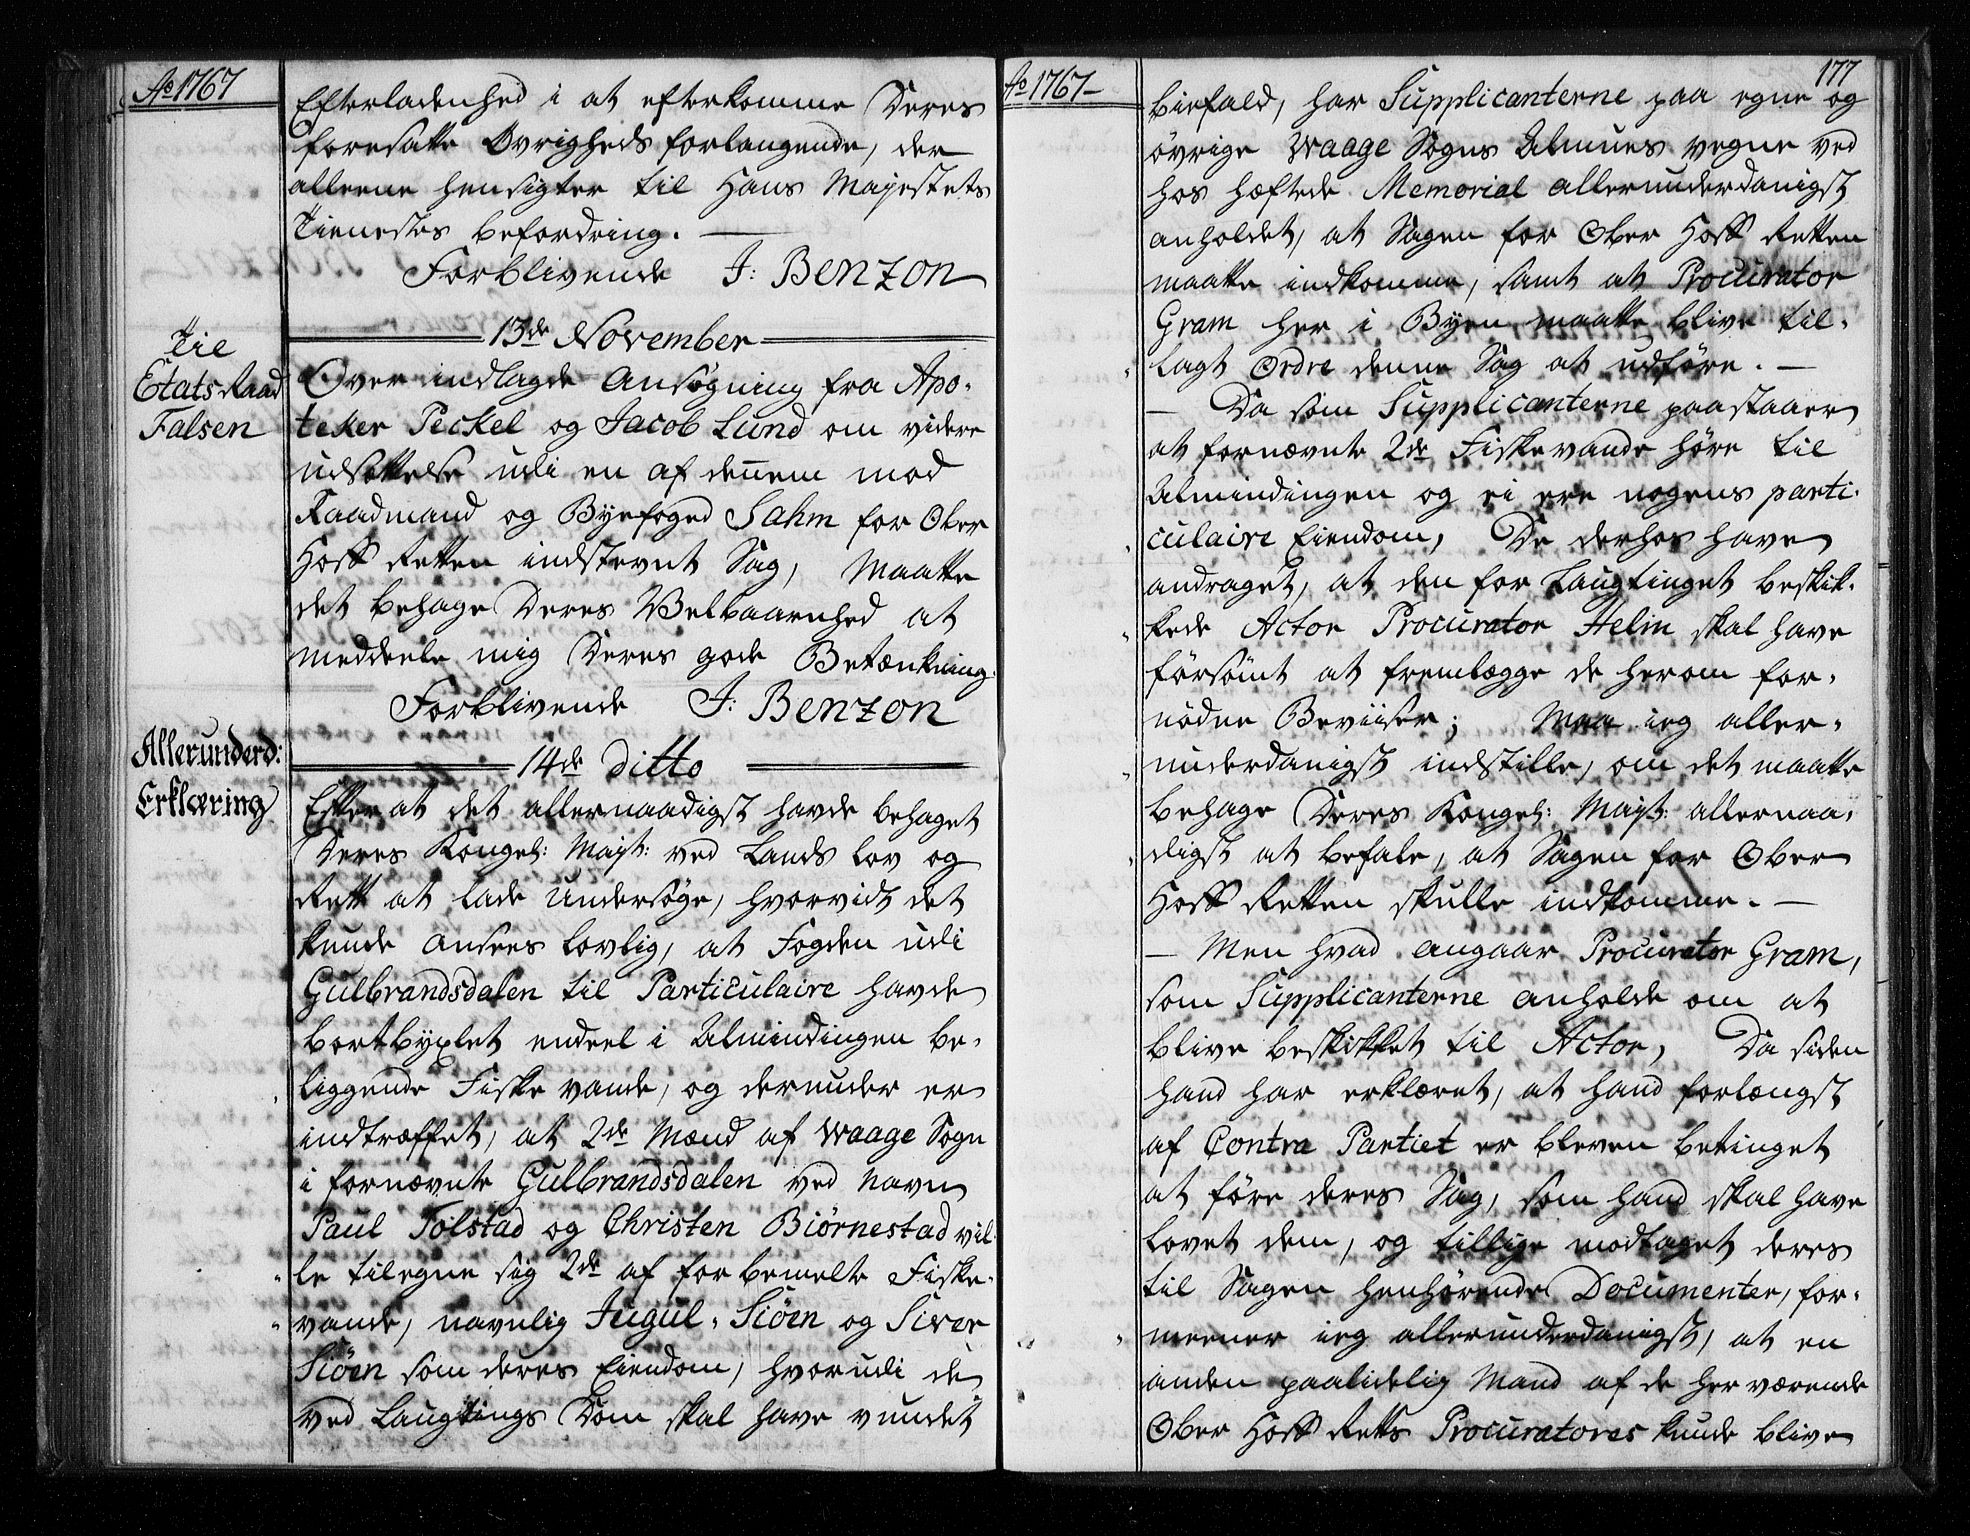 Ao 1767
Efterladenhed i at efterkomme Deres
foresatte Øvrigheds forlangende, der
alleene hensigter til Hans Majestets
Tienestes befordring. —
Forblivende J: Benzon
13de November
Til
Etats Raad
Falsen
Over indlagde Ansøgning fra Apo-
teker Peckel og Jacob Lund om videre
udsættelse udi en af dennem mod
Raadmand og Byefoged Sahm for Ober
Hoff Retten indstevnt Sag, Maatte
det behage Deres Velbaarenhed at
meddeele mig Deres gode Betænkning.
Forblivende J: Benzon
14de Ditto
Allerunderd:
Erklæring
Efter at det allernaadigst havde behaget
Deres Kongel: Mayt: ved Lands Lov og
Rett at lade undersøge, hvorvidt det
kunde ansees lovlig, at Fogden udi
Gulbrandsdalen til Particulaire havde
bortbyxlet endeel i Almindingen be-
liggende Fiske vande, og derunder er
indtræffet, at 2de Mænd af Waage Sogn
i fornævnte Gulbrandsdalen ved Navn
Paul Tolstad og Christen Biørnestad vil-
le tilegne sig 2de af forbemelte Fiske-
vande, navnlig Jugul-Siøen og Siver
Siøen som deres Eiendom, hvorudi de
ved Laugtings Dom skal have vundet
Ao 1767 —
177
biefald, har Supplicanterne paa egne og
øvrige Waage Sogns Almues vegne ved
hos hæftede Memorial allerunderdanigst
anholdet, at Sagen for Ober Hoff Retten
maatte indkomme, samt at Procurator
Gram her i Byen maatte blive til-
lagt Ordre denne Sag at udføre. —
— Da som Supplicanterne paastaaer
at fornævnte 2de Fiskevande høre til
Almindingen og ei ere nogens parti-
culaire Eiendom, De derhos have
andraget, at den for Laugtinget beskik-
kede Actor Procurator Helm skal have
forsømt at fremlægge de herom for-
nødne Beviiser; Maa ieg aller-
underdanigst indstille, om det maatte
behage Deres Kongel: Mayt: allernaa-
digst at befale, at Sagen for Ober
Hoff Retten skulle indkomme. —
— Men hvad angaar Procurator Gram,
som Supplicanterne anholde om at
blive beskikket til Actor, Da siden
hand har erklæret, at hand forlængst
af Contra Partiet er bleven betinget
at føre deres Sag, som hand skal have
lovet dem, og tillige modtaget deres
til Sagen henhørende Documenter, for-
meener ieg allerunderdanigst, at en
anden paalidelig Mand af de her værende
Ober Hoff Retts Procuratores kunde blive